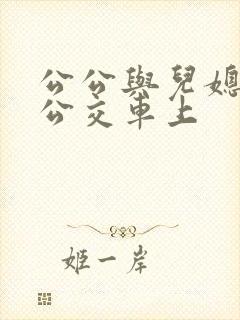 公公與兒媳
公交車上
姬一岸